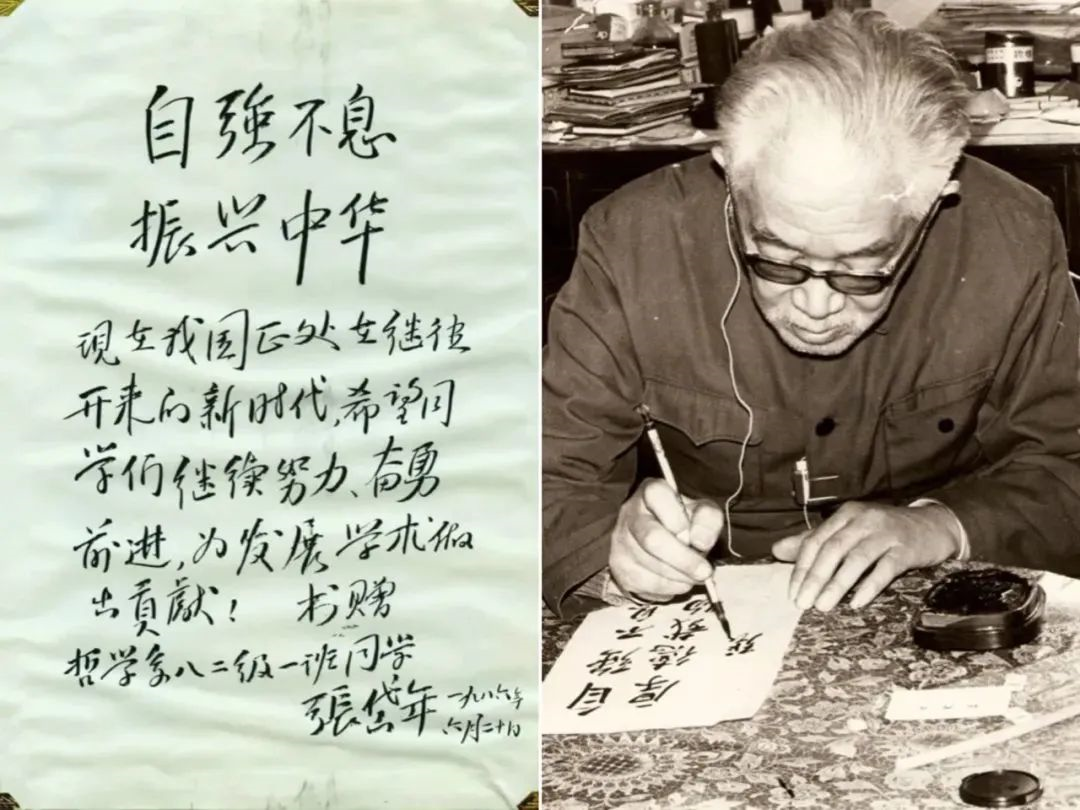 自強不息
振兴中华
現在我国正处在继往
开来的新时代,希望同
学们继续努力、奋勇
前进,为发展学术做
出貢獻! 书赠
哲学系八二级一班同学
張岱年 一九八六年
六月二十日
自强不息
厚德载物